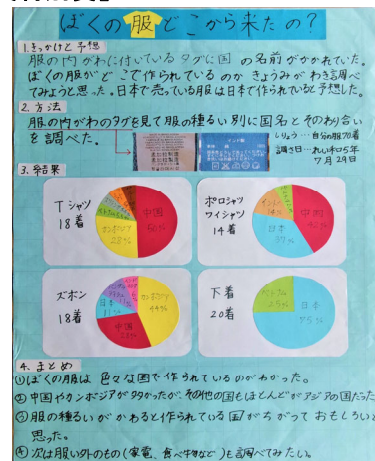 ぼくの服どこから来たの?
1.きっかけと予想
服の内がわに付いているタグに国の名前がかかれていた。
ぼくの服がどこで作られているのかきょうみがわき調べ
てみようと思った。日本で売っている服は日本で作られていると予想した。
2.方法
服の内がわのタグを見て服の種るい別に国名とそのわり合い
を調べた。
しりょう…自分の服70着
調査日…れい和05年
7月29日
3.結果
Tシャツ
18着
中国
50%
カンボジア
28%
ポロシャツ
ワイシャツ
14着
中国
日本
ズボン
18着
カンボジア
44%
中国
日本
11%
下着
20着
ベトナム
25%
日本
75%
4.まとめ
①ぼくの服は色々な国で作られているのがわかった。
②中国やカンボジアが多かったが、その他の国もほとんどがアジアの国だった
③服の種るいがかわると作られている国がちがっておもしろいと
思った。
④次は服い外のもの(家電、食べ物など)も調べてみたい。